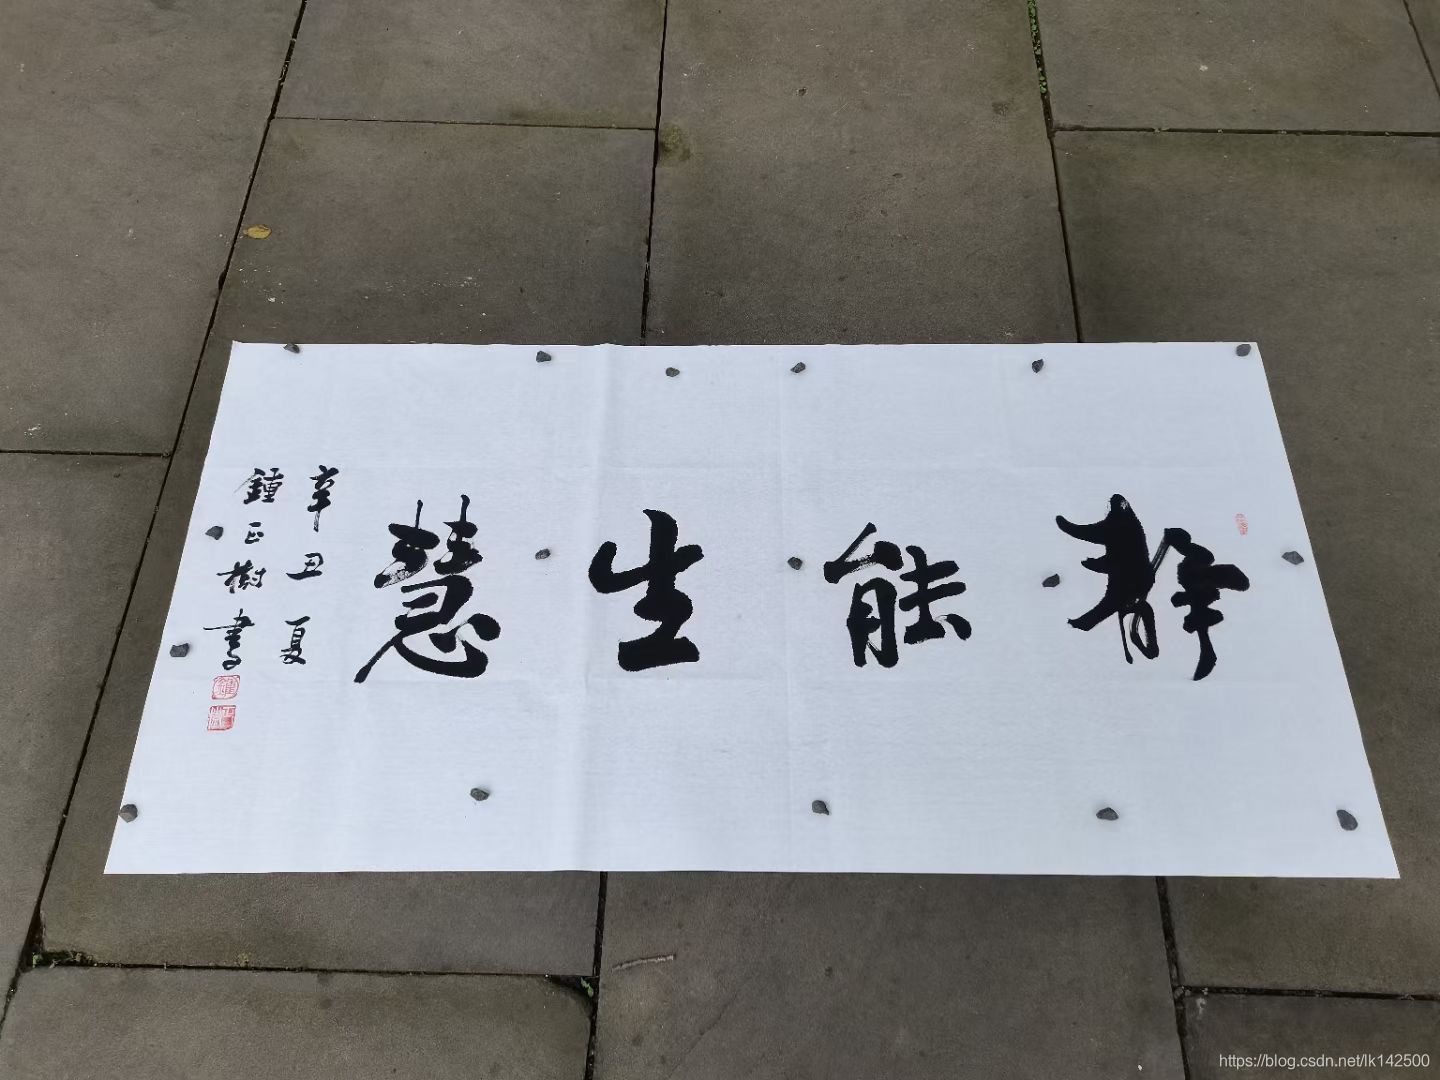 靜能生慧
辛丑夏
鍾正樹書
https://blog.csdn.net/lk142500